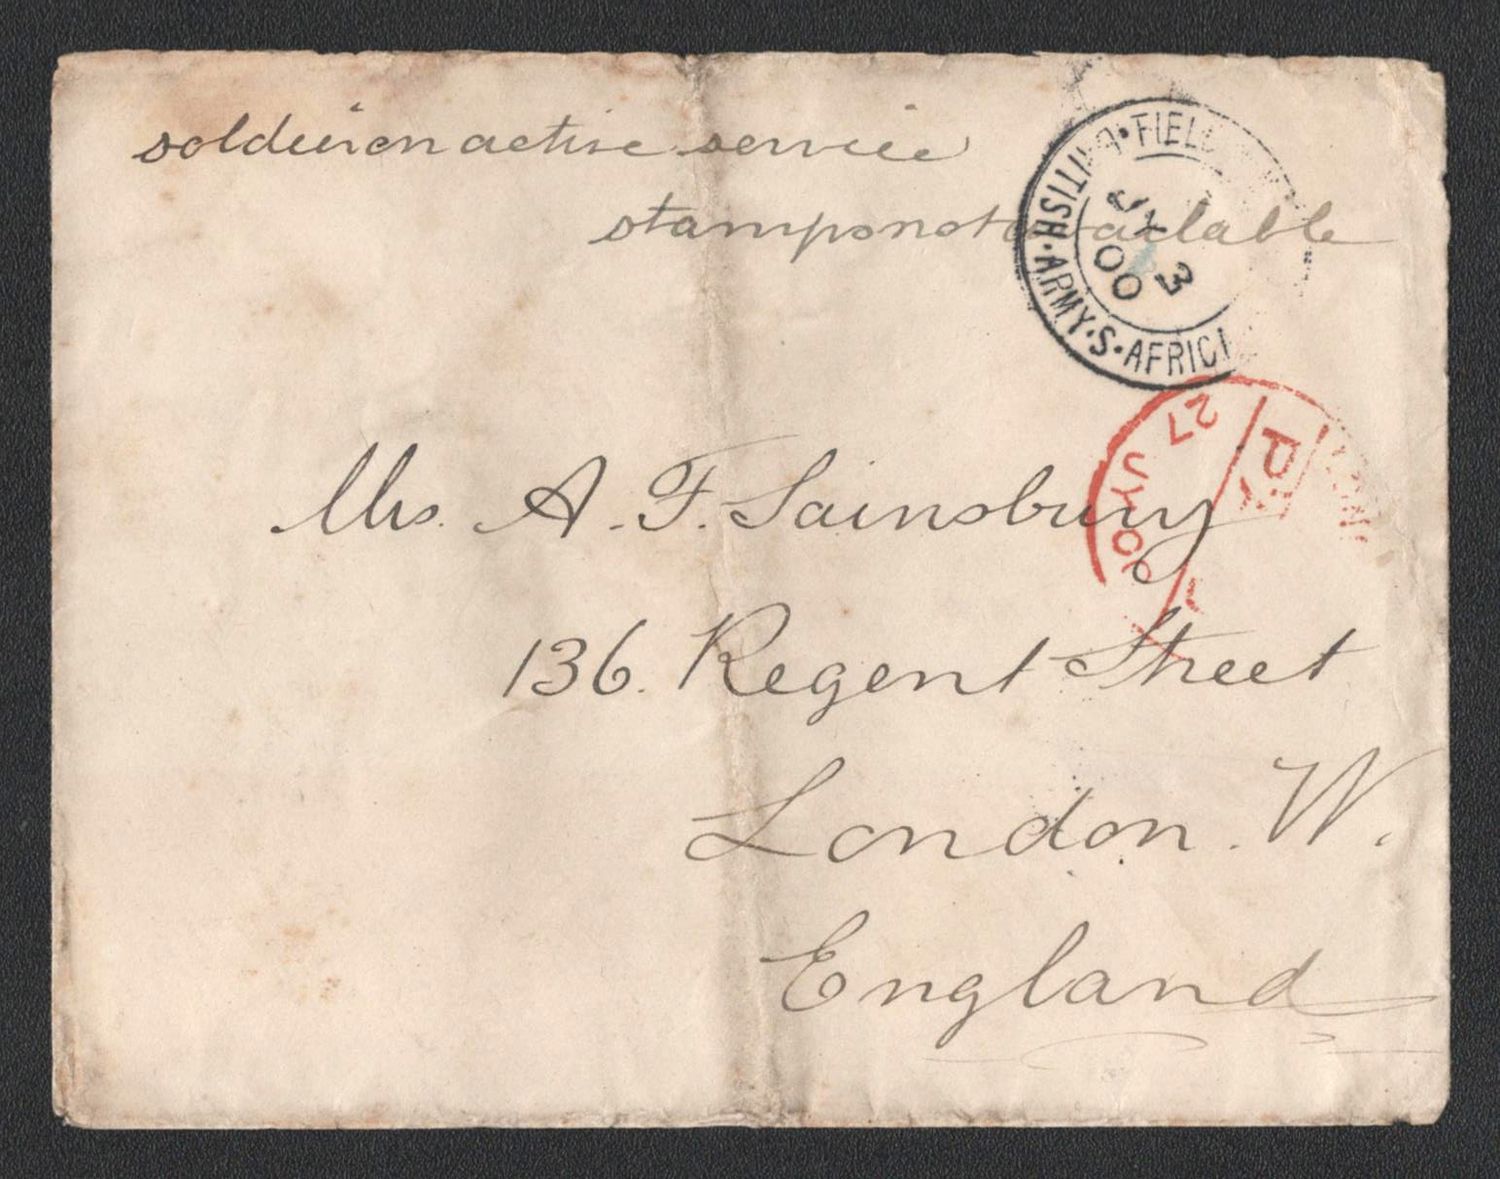 soldier on active service
stamps not available
FIELD
BRITISH · ARMY · S · AFRICA
JY 3
00
27 JY 00
Mrs. A. F. Sainsbury
136. Regent Street
London. W.
England